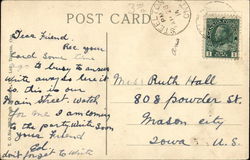 POST CARD
Dear Friend.
Rec your
Card some time
ago to busy to answer
write away so here it
so this is our
Main Street. Watch
for me I am coming
to the party. Write soon
your Friend
Ed.
don't forget to write
Miss Ruth Hall
808 powder St.
Mason city
Iowa. U.S.